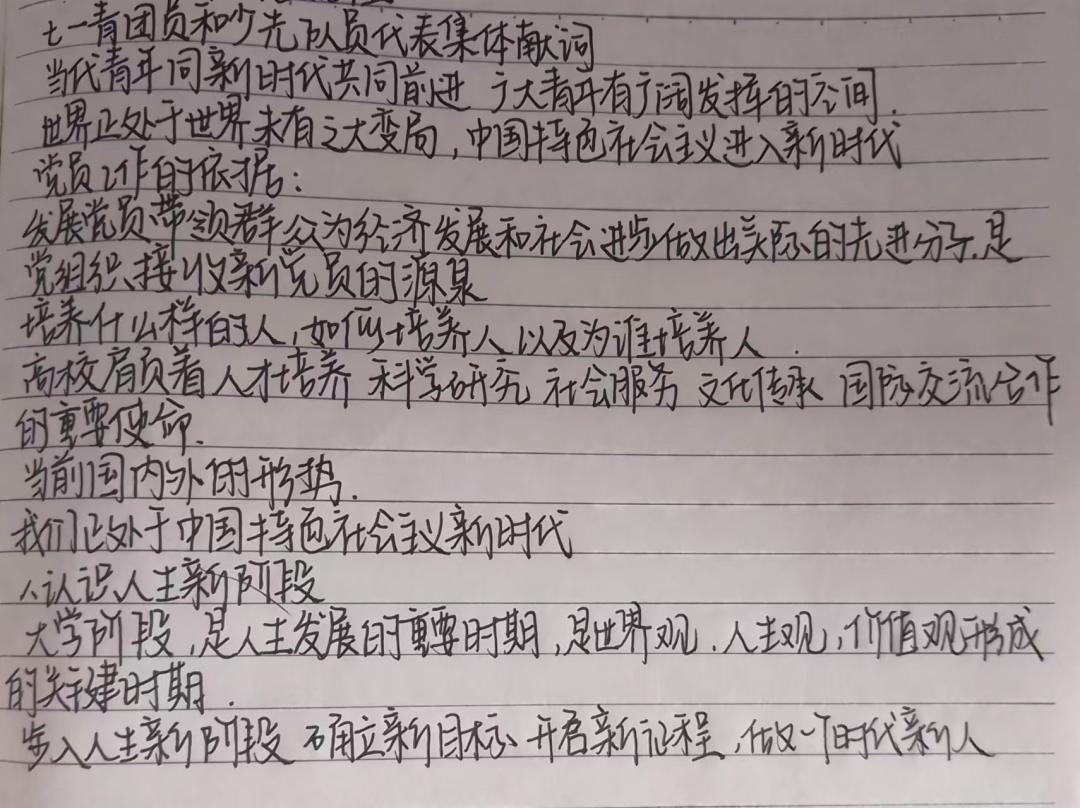 七一青团员和少先队员代表集体献词
当代青年同新时代共同前进 广大青年有广阔发挥的空间.
世界正处于世界未有之大变局,中国特色社会主义进入新时代
党员工作的依据:
发展党员.带领群众为经济发展和社会进步做出实际的先进分子.是
党组织接收新党员的源泉
培养什么样的人,如何培养人以及为谁培养人.
高校肩负着人才培养 科学研究 社会服务 文化传承 国际交流合作
的重要使命.
当前国内外的形势.
我们正处于中国特色社会主义新时代
认识人生新阶段
大学阶段,是人生发展的重要时期,是世界观.人生观,价值观形成
的关键时期.
步入人生新阶段 确立新目标 开启新征程,做一个时代新人